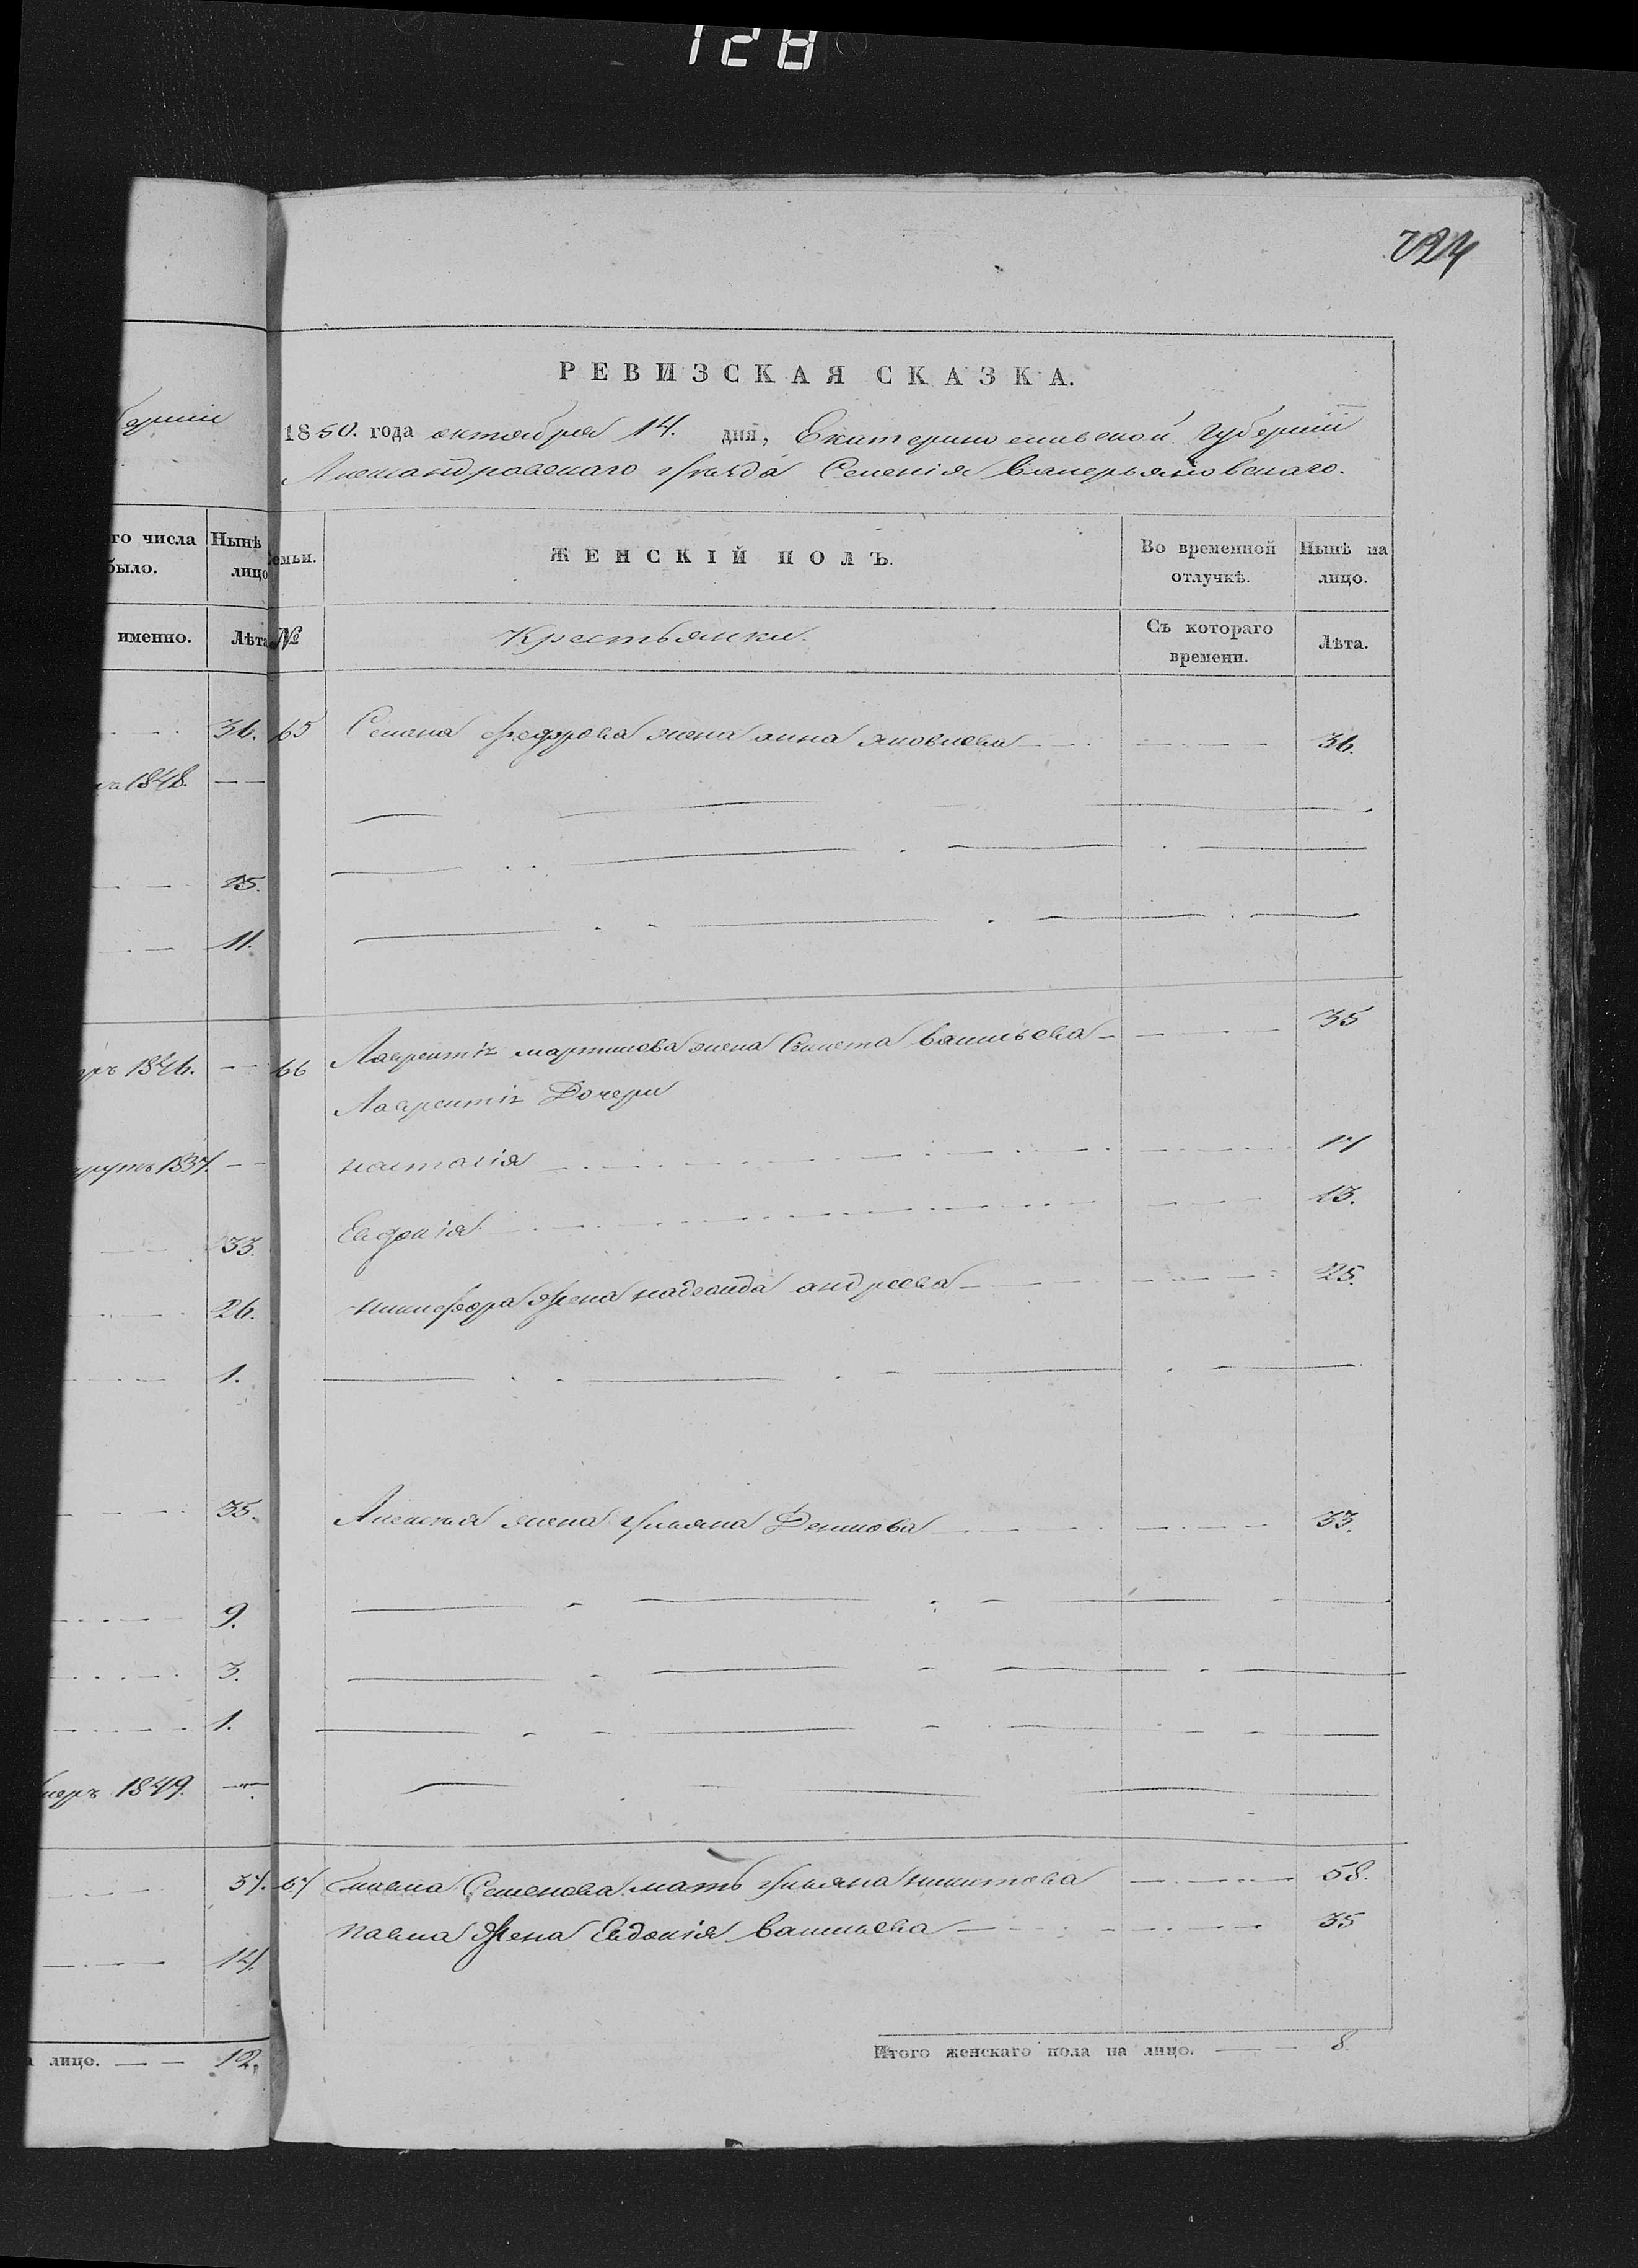 128
724
РЕВИЗСКАЯ СКАЗКА.
1850. года октября 14. дня, Екатеринославской Губернии
Александровскаго уѣзда Селенія Валерьяновскаго.
го числа было. Нынѣ лицо
Семьи. ЖЕНСКІЙ ПОЛЪ. Во временной отлучкѣ. Нынѣ на лицо.
именно. Лѣта
№ Крестьянки. Съ котораго времени. Лѣта.
36. 65 Семена Федорова жена анна яковлева 36.
1848.
15.
11.
1846. 66 Лаврентія мартинова жена васильева 35
Лаврентія Дочери
1837. настасія 17
33. Евдокія 13.
26. никифора Жена надежда андреева 25.
1.
35. Алексея жена Ульяна Денисова 33.
9.
3.
1.
1849.
37. 67 павла Семенова мать Ульяна никитова 58.
павла Жена Евдокія васильева 35
14.
лицо. 12.
Итого женскаго пола на лицо. 8